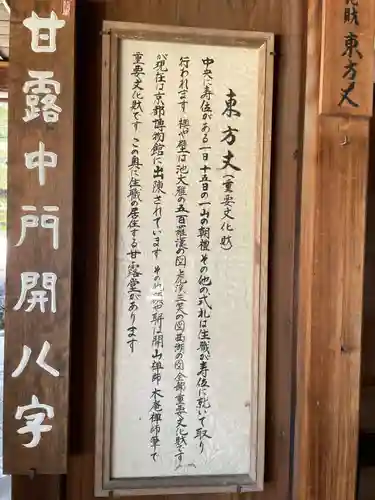 化財 東方丈
東方丈（重要文化財）
中央に寿位がある一日十五日の一山の朝礼 その他の式礼は住職が寿位に就いて取り
行われます 襖や壁は池大雅の五百羅漢の図 虎渓三笑の図西湖の図全部重要文化財です
が現在は京都博物館に出陳されています その他 は開山禅師 木庵禅師筆で
重要文化財です この奥に住職の居住する甘露堂があります
甘露中門開八字